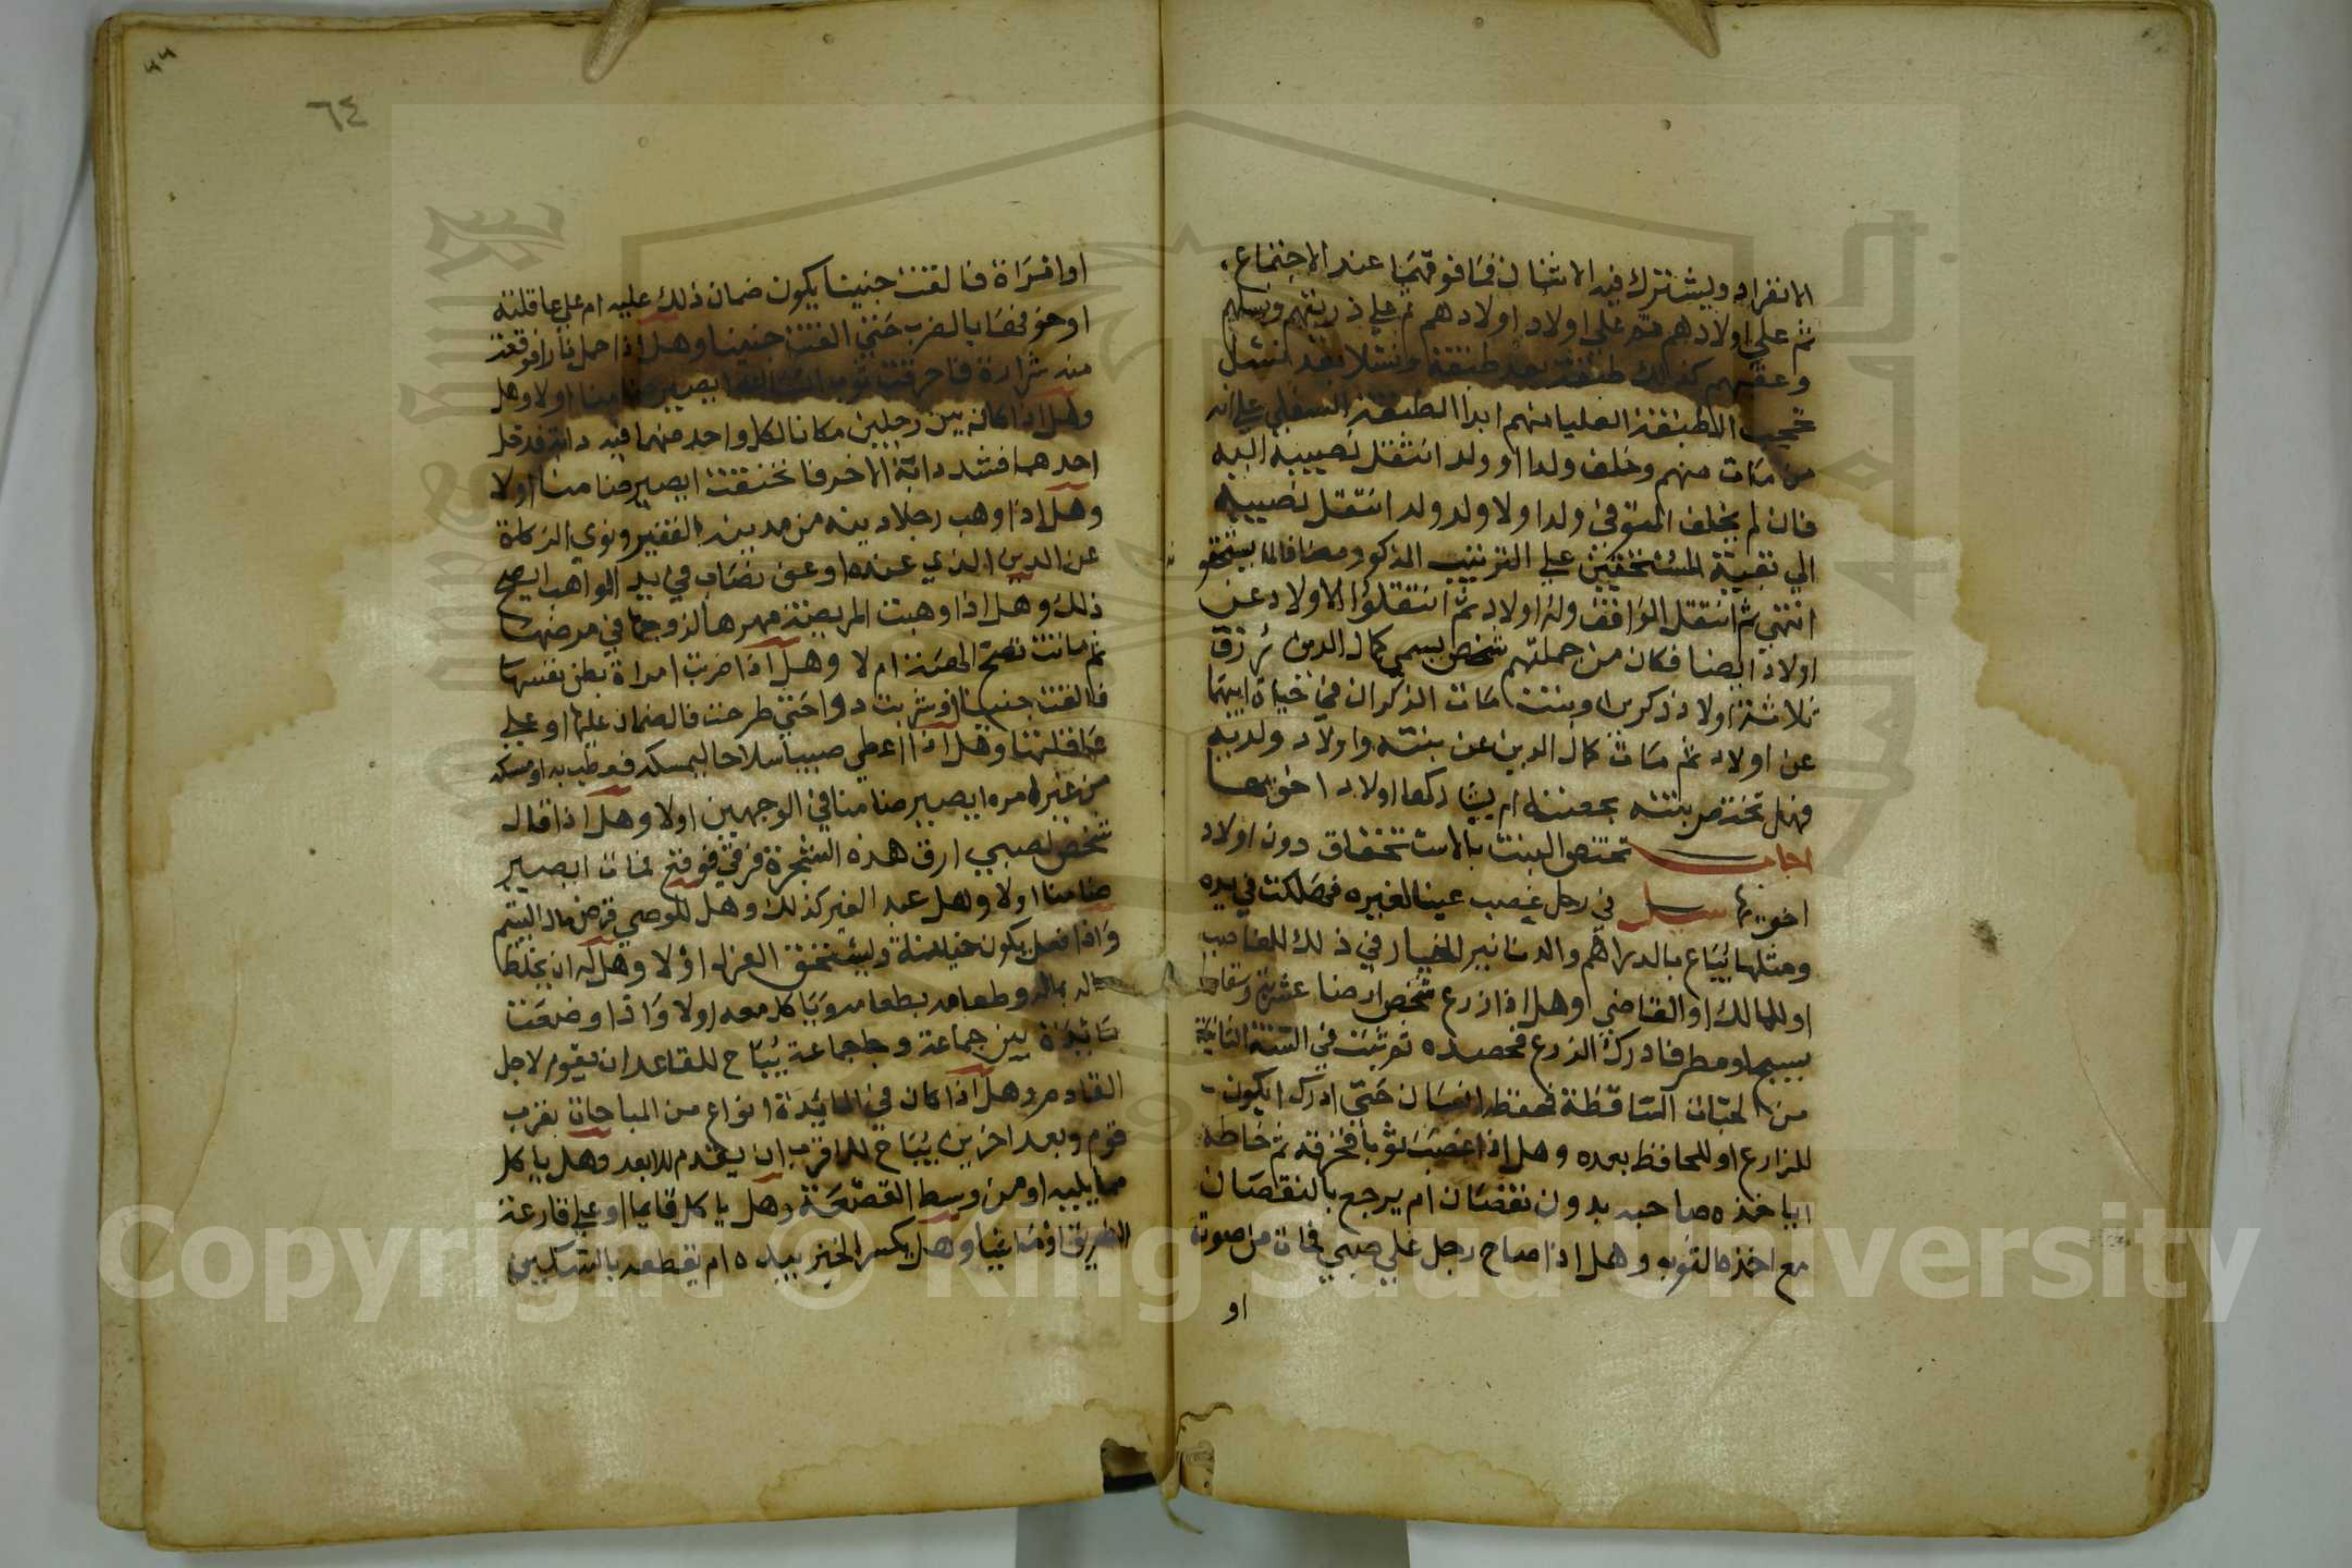 الانفراد ويشترك فيه الاثنان فما فوقهما عند الاجتماع
ثم على اولادهم ثم على اولاد اولادهم ثم على ذريتهم ونسلهم
وعقبهم كذلك طبقة بعد طبقة ونسلا بعد نسل
تحجب الطبقة العليا منهم ابدا الطبقة السفلي على ان
من مات منهم وخلف ولدا او ولد انتقل نصيبه اليه
فان لم يخلف المتوفى ولدا ولا ولد ولد انتقل نصيبه
الي بقية المستحقين على الترتيب المذكور مضافا لما يستحقو
انتهى ثم انتقل الواقف وله اولاد ثم انتقلوا الاولاد عن
اولاد ايضا فكان من جملتهم شخص يسمي كمال الدين رزق
ثلاثة اولاد ذكرين وبنت مات الذكران في حياة ابيهما
عن اولاد ثم مات كمال الدين عن بنته واولاد ولديه
فهل تختص بنته بحصته ام يشاركها اولاد اخويها
اجاب تختص البنت بالاستحقاق دون اولاد
اخويها سيل في رجل غصب عينا لغيره فهلكت في يده
ومثلها يباع بالدراهم والدنانير الخيار في ذلك للغاصب
او للمالك او القاضي وهل اذا زرع شخص ارضا
بسيح او مطر فادرك الزرع فحصده ثم نبت في السنة الثانية
من الحبات الساقطة فحفظه انسان حتى ادرك ايكون
للزارع او للحافظ بعده وهل اذا غصب ثوبا فخرقه ثم خاطه
اياخذه صاحبه بدون نقصان ام يرجع بالنقصان
مع اخذه الثوب وهل اذا صاح رجل علي صبي فمات من صوته
او
٦٤
او امراة فالقت جنينا يكون ضمان ذلك عليه ام علي عاقلته
او خوفها بالضرب حتى القت جنينا وهل اذا حمل نارا فوقعت
منه شرارة فاحرقت ثوب انسان ايصير ضامنا اولا وهل
وهل اذا كان بين رجلين مكانا لكل واحد منهما فيه دابة فدخل
احدهما فشد دابة الاخر فاختنقت ايصير ضامنا اولا
وهل اذا وهب رجلا دينه من مدينه الفقير ونوي الزكاة
عن الدين الذي عنده او عن نصاب في يد الواهب ايصح
ذلك وهل اذا وهبت المريضة مهرها لزوجها في مرضها
ثم ماتت تصح الهبة ام لا وهل اذا ضربت امراة بطن نفسها
فالقت جنينا او شربت دوا حتى طرحت فالضمان عليها او على
عاقلتها وهل اذا اعطي صبيا سلاحا ليمسكه فعطب به او مسكه
من غير امره ايصير ضامنا في الوجهين اولا وهل اذا قال
شخص لصبي ارق هذه الشجرة فرقي فوقع فمات ايصير
ضامنا اولا وهل عبد الغير كذلك وهل للوصي قرض مال اليتيم
واذا فعل يكون خيانة ويستحق العزل اولا وهل له ان يخلط
ماله بماله وطعامه بطعامه وياكل معه اولا واذا وضعت
مائدة بين جماعة وجا جماعة يباح للقاعد ان يقوم لاجل
القادم وهل اذا كان في المائدة انواع من المباحات بقرب
قوم وبعد اخرين يباح للاقرب ان يقدم للابعد وهل ياكل
مما يليه او من وسط القصعة وهل ياكل قايما او على قارعة
الطريق او ماشيا وهل يكسر الخبز بيده ام يقطعه بالسكين
Copyright © King Saud University